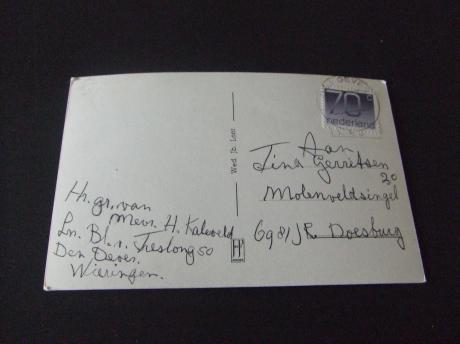 Hr. gr. van
Mevr. H. Kaleveld
Ln. Bl. v. Treslong 50
Den Oever.
Wieringen.
Wed. Jb. Leer
H
70 c
nederland
Aan
Tina Gerritsen
Molenveldsingel 30
6981JR Doesburg